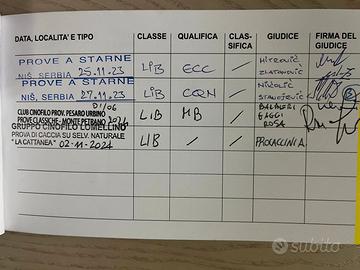 DATA, LOCALITA' E TIPO CLASSE QUALIFICA CLAS- SIFICA GIUDICE FIRMA DEL GIUDICE
PROVE A STARNE
NIŠ, SERBIA 25.11.23 LIB ECC / MITROVIĆ ZLATANOVIĆ
PROVE A STARNE
NIŠ, SERBIA 27.11.23 LIB CQN / NIKOLIĆ STANOJEVIĆ
01/06
CLUB CINOFILO PROV. PESARO URBINO
PROVE CLASSICHE - MONTE PETRANO 2024 LIB MB / BALDUCCI GAGGI ROSA
GRUPPO CINOFILO LOMELLINO
PROVA DI CACCIA SU SELV. NATURALE
"LA CATTANEA" 02-11-2024 LIB / / PROCACCINI A.
subito